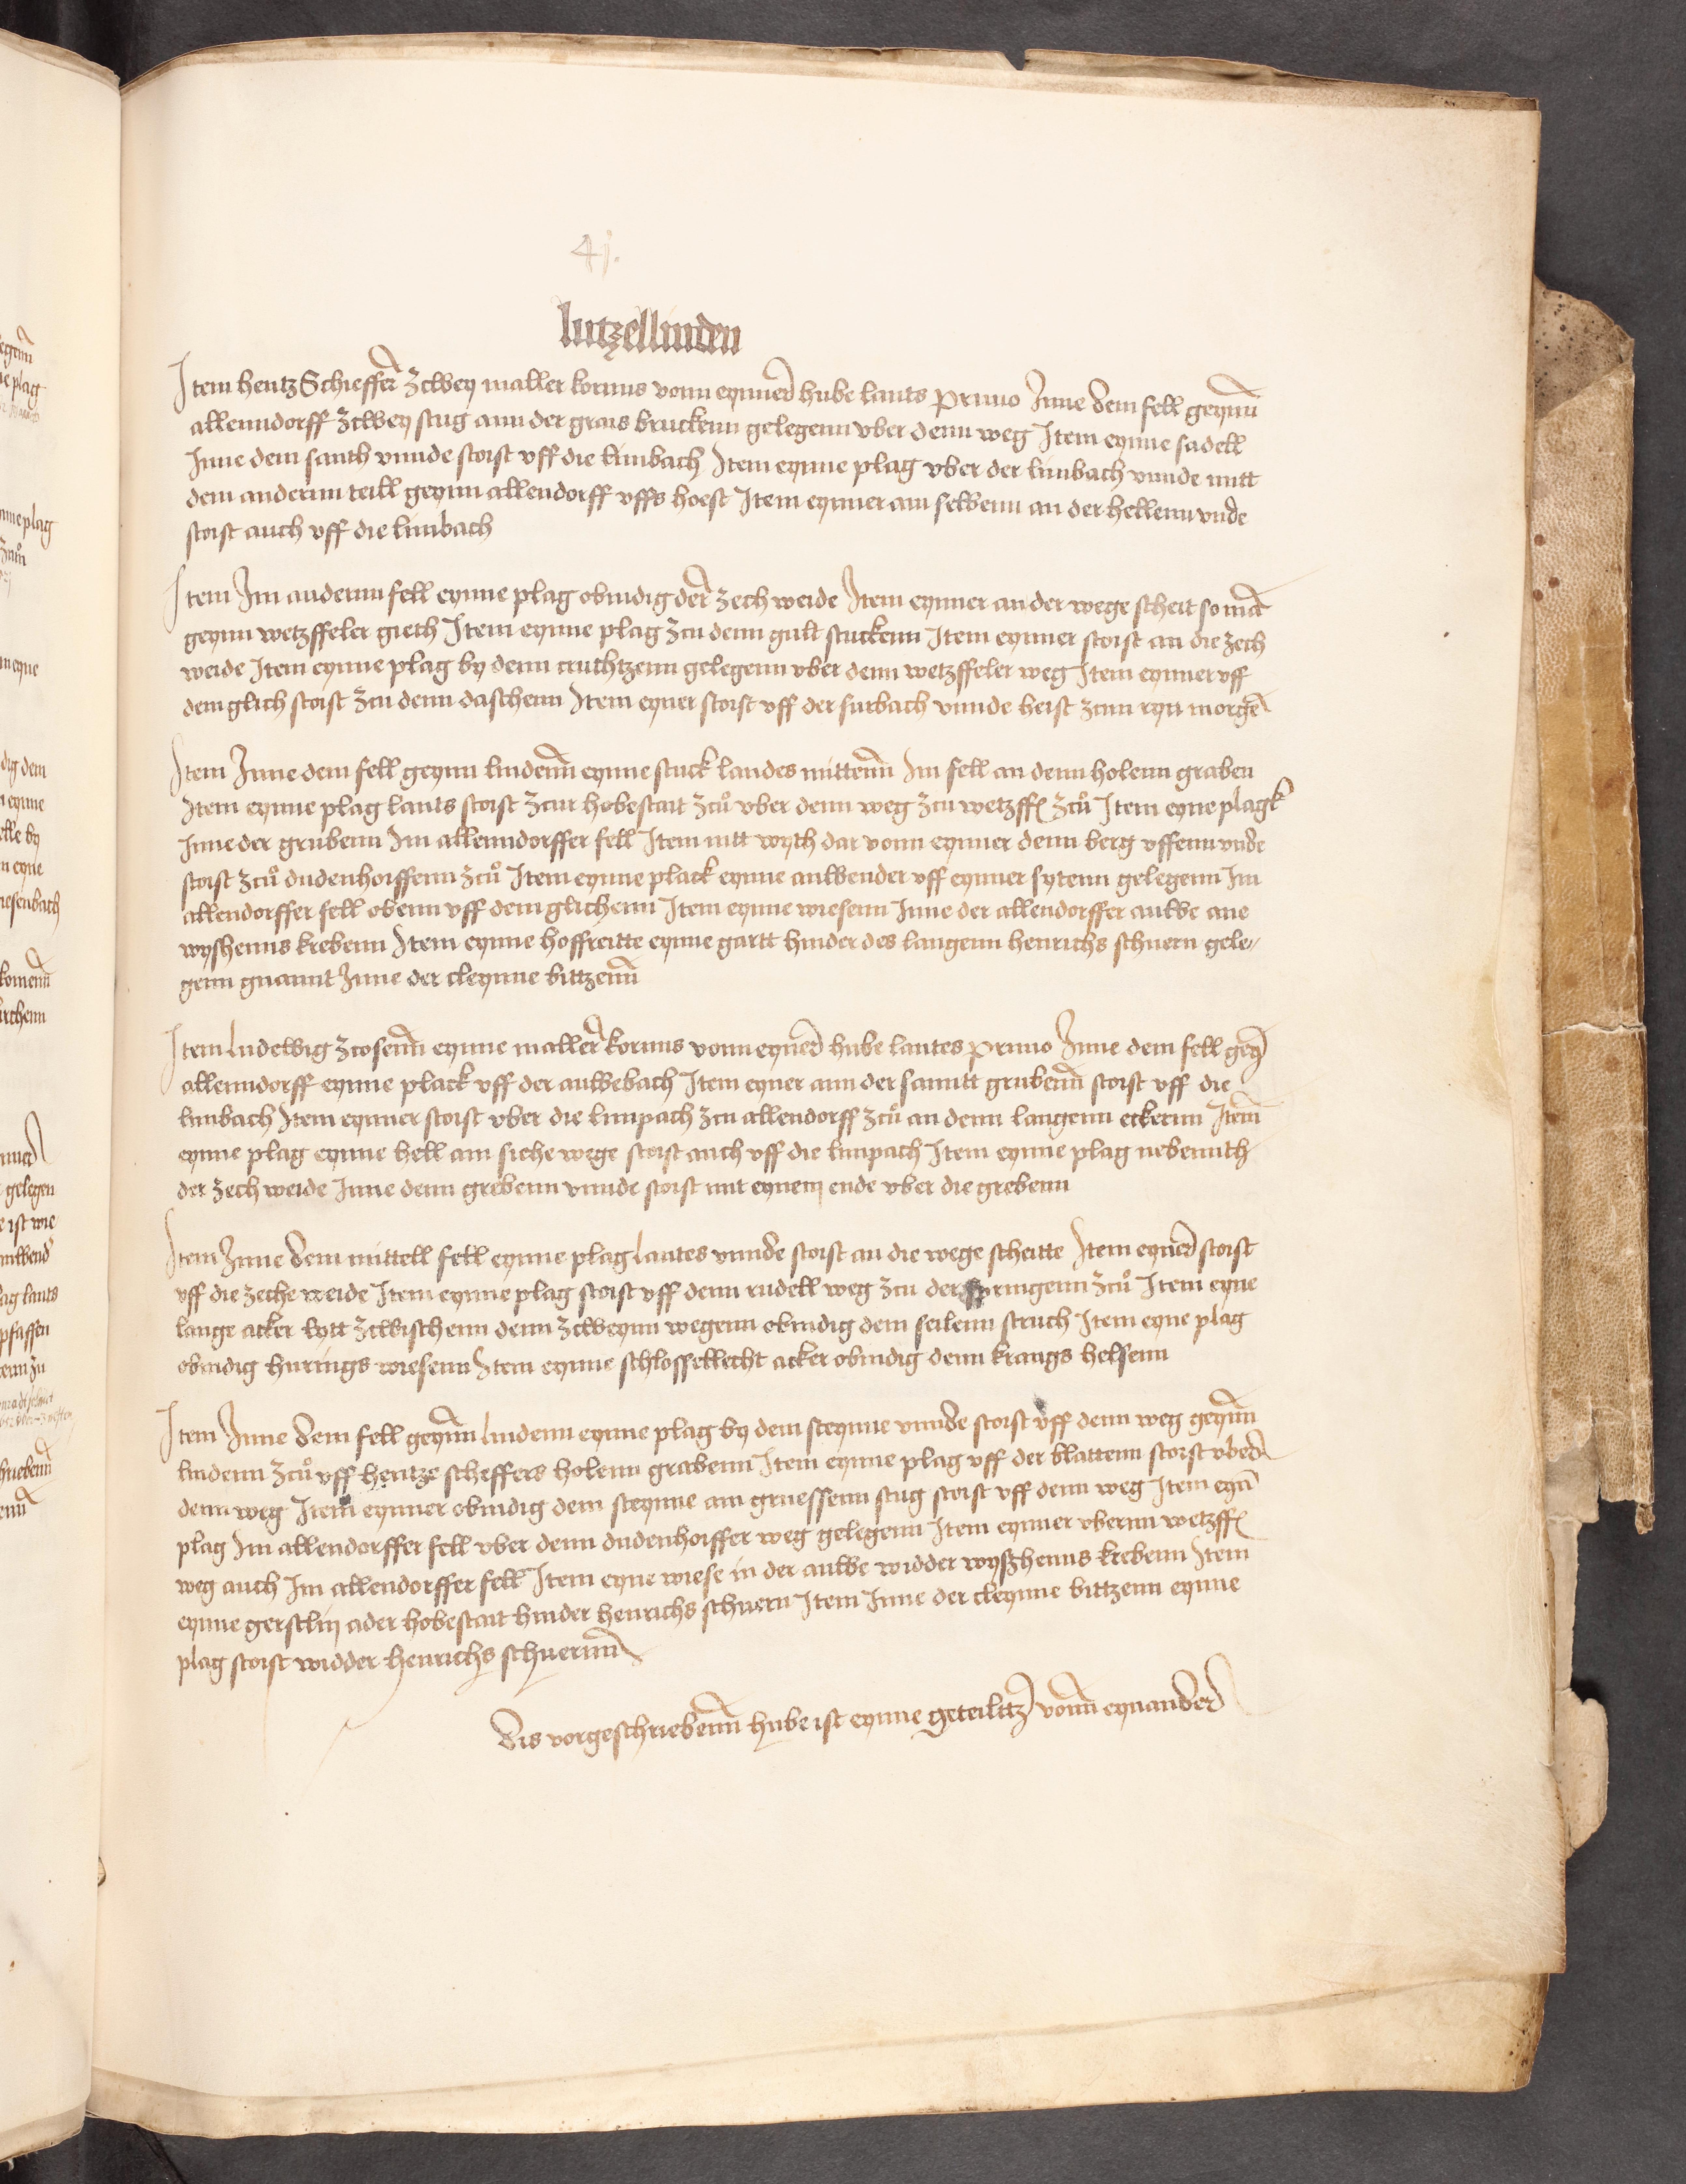 41.
lutzellinden
Item hentz Schieffer zcwey malter korns vonn eynner hube lants primo Inne dem fell geynn
allenndorff zcwey stug ann der grais bruckenn gelegenn vber denn weg Item eynne sadell
Inne dem santh vnnde stoist vff die limbach Item eynne plag vber der limbach vnnde mitt
dem andernn teill geynn allendorff vffs hoest Item eynner am selbenn an der hellenn vnde
stoist auch vff die limbach
Item Im andernn fell eynne plag obindig der zech weide Item eynner an der wege scheit so mā
geynn wetzffeler gieth Item eynne plag zcu denn gult stuckenn Item eynner stoist an die zech
weide Item eynne plag by denn cruthtzenn gelegenn vber denn wetzffeler weg Item eynner vff
dem glich stoist zcu denn daschenn Item eyner stoist vff der surbach vnnde heist zcun ryn morgē
Item Inne dem fell geynn lindenn eynne stuck landes mittenn Im fell an denn holenn graben
Item eynne plag lants stoist zcur hobestait zců vber denn weg zcu wetzffl zců Item eyne plagk
Inne der grubenn Im allenndorffer fell Item nitt wyth dar vonn eynner denn berg vffenn vnde
stoist zců dudenhoiffenn zců Item eynne plack eynne anwender vff eynner sytenn gelegenn Im
allendorffer fell obenn vff dem glichenn Item eynne wiesenn Inne der allendorffer auwe ane
wyßhenns krebenn Item eynne hoffreitte eynne gartt hinder des langenn henrichs schuern gele
genn gnannt Inne der cleynne bittzenn
Item ludewig zcosenn eynne malter korns vonn eyner hube lantes primo Inne dem fell gey
allenndorff eynne plack vff der auwebach Item eyner ann der sanntt grubenn stoist vff die
limbach Item eynner stoist vber die limpach zcu allendorff zců an denn langenn eckernn Item
eynne plag eynne hell am siehe wege stoist auch vff die limpach Item eynne plag nebennth
der zech weide Inne denn grebenn vnnde stoist mit eynem ende vber die grebenn
Item Inne dem mittell fell eynne plag lantes vnnde stoist an die wege scheitte Item eyner stoist
vff die zeche weide Item eynne plag stoist vff denn rudell weg zcu der springenn zců Item eyne
lange acker lytt zcwischenn denn zcweynn wegenn obindig dem seilenn struch Item eyne plag
obindig hurings wiesenn Item eynne schlossellecht acker obindig denn krangs helsenn
Item Inne dem fell geynn lindenn eynne plag by dem steynne vnnde stoist vff denn weg geynn
lindenn zců vff hentze scheffers holenn grabenn Item eynne plag vff der blattenn stoist vber
denn weg Item eynner obindig dem steynne am gruessenn stug stoist vff denn weg Item eyn
plag Im allendorffer fell vber denn dudenhoiffer weg gelegenn Item eynner vbernn wetzffl
weg auch Im allendorffer fell Item eyne wiese in der auwe widder wyßhenns krebenn Item
eynne gerstlin ader hobestait hinder henrichs schuern Item Inne der cleynne bittzenn eynne
plag stoist widder henrichs schuernn
Dis vorgeschriebenn hube ist eynne geteilttz vonn eynander